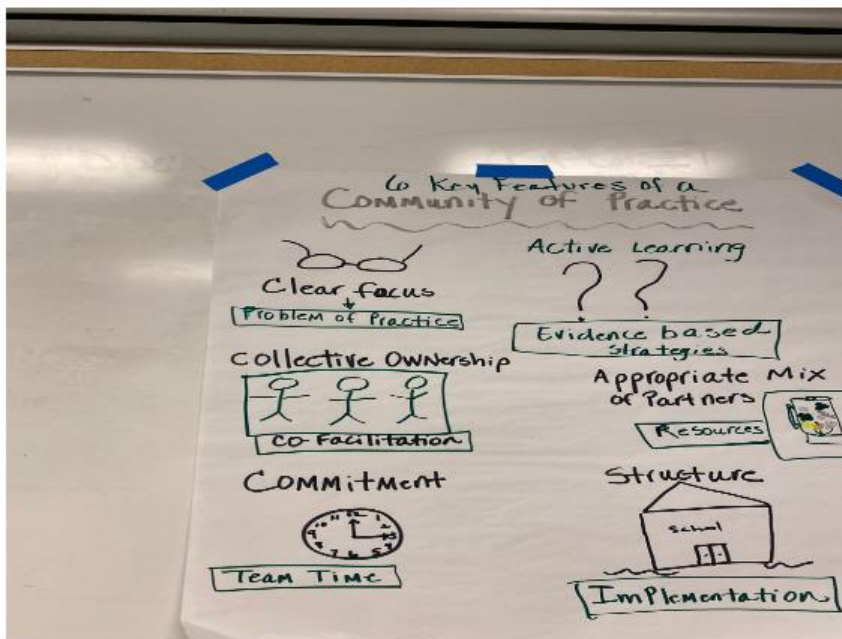 6 Key Features of a
Community of Practice
Clear focus
Problem of Practice
Active Learning
? ?
Evidence based
Strategies
Collective Ownership
Co Facilitation
Appropriate Mix
of Partners
Resources
Commitment
11 12 1
10 2
9 3
8 4
7 6 5
Team Time
Structure
School
Implementation